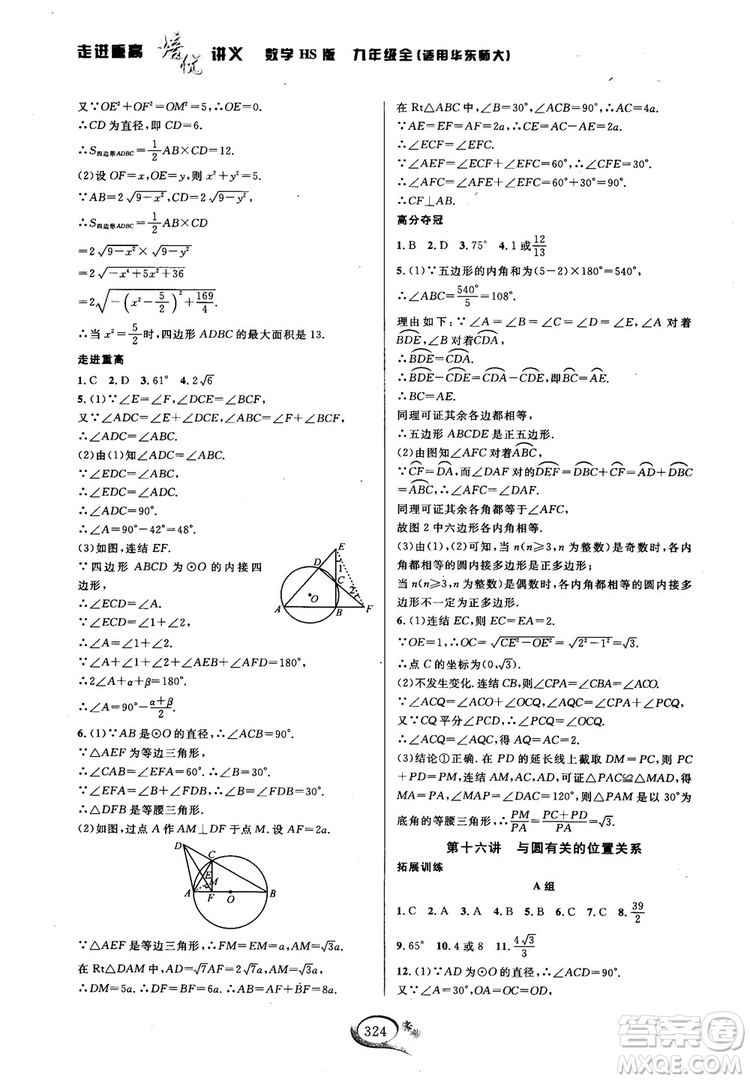 走进重高 培优 讲义 数学 HS 版 九年级全(适用华东师大)
又∵OE²+OF²=OM²=5,∴OE=0.
∴CD为直径,即CD=6.
∴S四边形ADBC=1/2 AB×CD=12.
(2)设OF=x,OE=y,则x²+y²=5.
∵AB=2√(9-x²),CD=2√(9-y²),
∴S四边形ADBC=1/2 AB×CD
=2√(9-x²)×√(9-y²)
=2√(-x⁴+5x²+36)
=2√(-(x²-5/2)²+169/4).
∴当x²=5/2时,四边形ADBC的最大面积是13.
走进重高
1.C 2.D 3.61° 4.2√6
5.(1)∵∠E=∠F,∠DCE=∠BCF,
又∵∠ADC=∠E+∠DCE,∠ABC=∠F+∠BCF,
∴∠ADC=∠ABC.
(2)由(1)知∠ADC=∠ABC,
∵∠EDC=∠ABC,
∴∠EDC=∠ADC.
∴∠ADC=90°.
∴∠A=90°-42°=48°.
(3)如图,连结EF.
∵四边形ABCD为⊙O的内接四
边形,
∴∠ECD=∠A.
∵∠ECD=∠1+∠2,
∴∠A=∠1+∠2.
∵∠A+∠1+∠2+∠AEB+∠AFD=180°,
∴2∠A+α+β=180°,
∴∠A=90°-(α+β)/2.
E
D
1
C
2
O
A
B
F
6.(1)∵AB是⊙O的直径,∴∠ACB=90°.
∵△AEF为等边三角形,
∴∠CAB=∠EFA=60°,∴∠B=30°.
∵∠EFA=∠B+∠FDB,∴∠B=∠FDB=30°.
∴△DFB是等腰三角形.
(2)如图,过点A作AM⊥DF于点M.设AF=2a.
D
C
E
M
A
F
O
B
∵△AEF是等边三角形,∴FM=EM=a,AM=√3a.
在Rt△DAM中,AD=√7AF=2√7a,AM=√3a,
∴DM=5a.∴DF=BF=6a.∴AB=8a.
在Rt△ABC中,∠B=30°,∠ACB=90°,∴AC=4a.
∵AE=EF=AF=2a,∴CE=AC-AE=2a.
∴∠ECF=∠EFC.
∵∠AEF=∠ECF+∠EFC=60°,∴∠CFE=30°.
∴∠AFC=∠AFE+∠EFC=60°+30°=90°.
∴CF⊥AB.
高分夺冠
1.B 2.D 3.75° 4.1或12/13
5.(1)∵五边形的内角和为(5-2)×180°=540°,
∴∠ABC=540°/5=108°.
理由如下:∵∠A=∠B=∠C=∠D=∠E,∠A对着
BDE,∠B对着CDA,
∴BDE=CDA.
∴BDE-CDE=CDA-CDE,即BC=AE.
∴BC=AE.
同理可证其余各边都相等,
∴五边形ABCDE是正五边形.
(2)由图知∠AFC对着ADC,
∵CF=DA,而∠DAF对的DEF=DBC+CF=AD+DBC=
ADC,∴∠AFC=∠DAF.
同理可证其余各角都等于∠AFC,
故图2中六边形各内角相等.
(3)由(1)(2)可知,当n(n≥3,n为整数)是奇数时,各内
角都相等的圆内接多边形是正多边形;
当n(n≥3,n为整数)时偶数时,各内角都相等的圆内接多
边形不一定为正多边形.
6.(1)连结EC,则EC=EA=2.
∵OE=1,∴OC=√(CE²-OE²)=√(2²-1²)=√3.
∴点C的坐标为(0,√3).
(2)不发生变化.连结AC,由圆的对称性知∠ACO=∠P.
∵∠ACQ=∠ACO+∠OCQ,∠AQC=∠P+∠PCQ,
又∵CQ平分∠PCD,∴∠OCQ=∠PCQ.
∴∠ACQ=∠AQC.∴AQ=AC,即AQ不变.
(3)结论①正确.在PD的延长线上截取DM=PC,则PC
+PD=PM,连结AM,AC,可证△PAC≌△MAD,得
MA=PA,∠PAM=∠DAC=120°,∴△PAM是以30°为
底角的等腰三角形,∴PM/PA=(PC+PD)/PA=√3.
第十六讲 与圆有关的位置关系
拓展训练
A组
1.C 2.D 3.B 4.D 5.B 6.C 7.C 8.39/2
9.65° 10.4或8 11.4√3/3
12.(1)∵AD为⊙O的直径,∴∠ACD=90°.
∵∠OAC=30°,∴∠ADC=60°.
324
答案圈
MXQE.COM